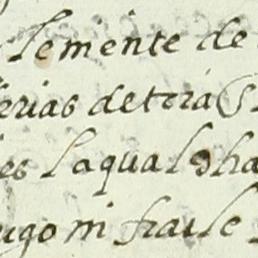 lemente de
erias de tora
es la qual dha
ugo ni fraile